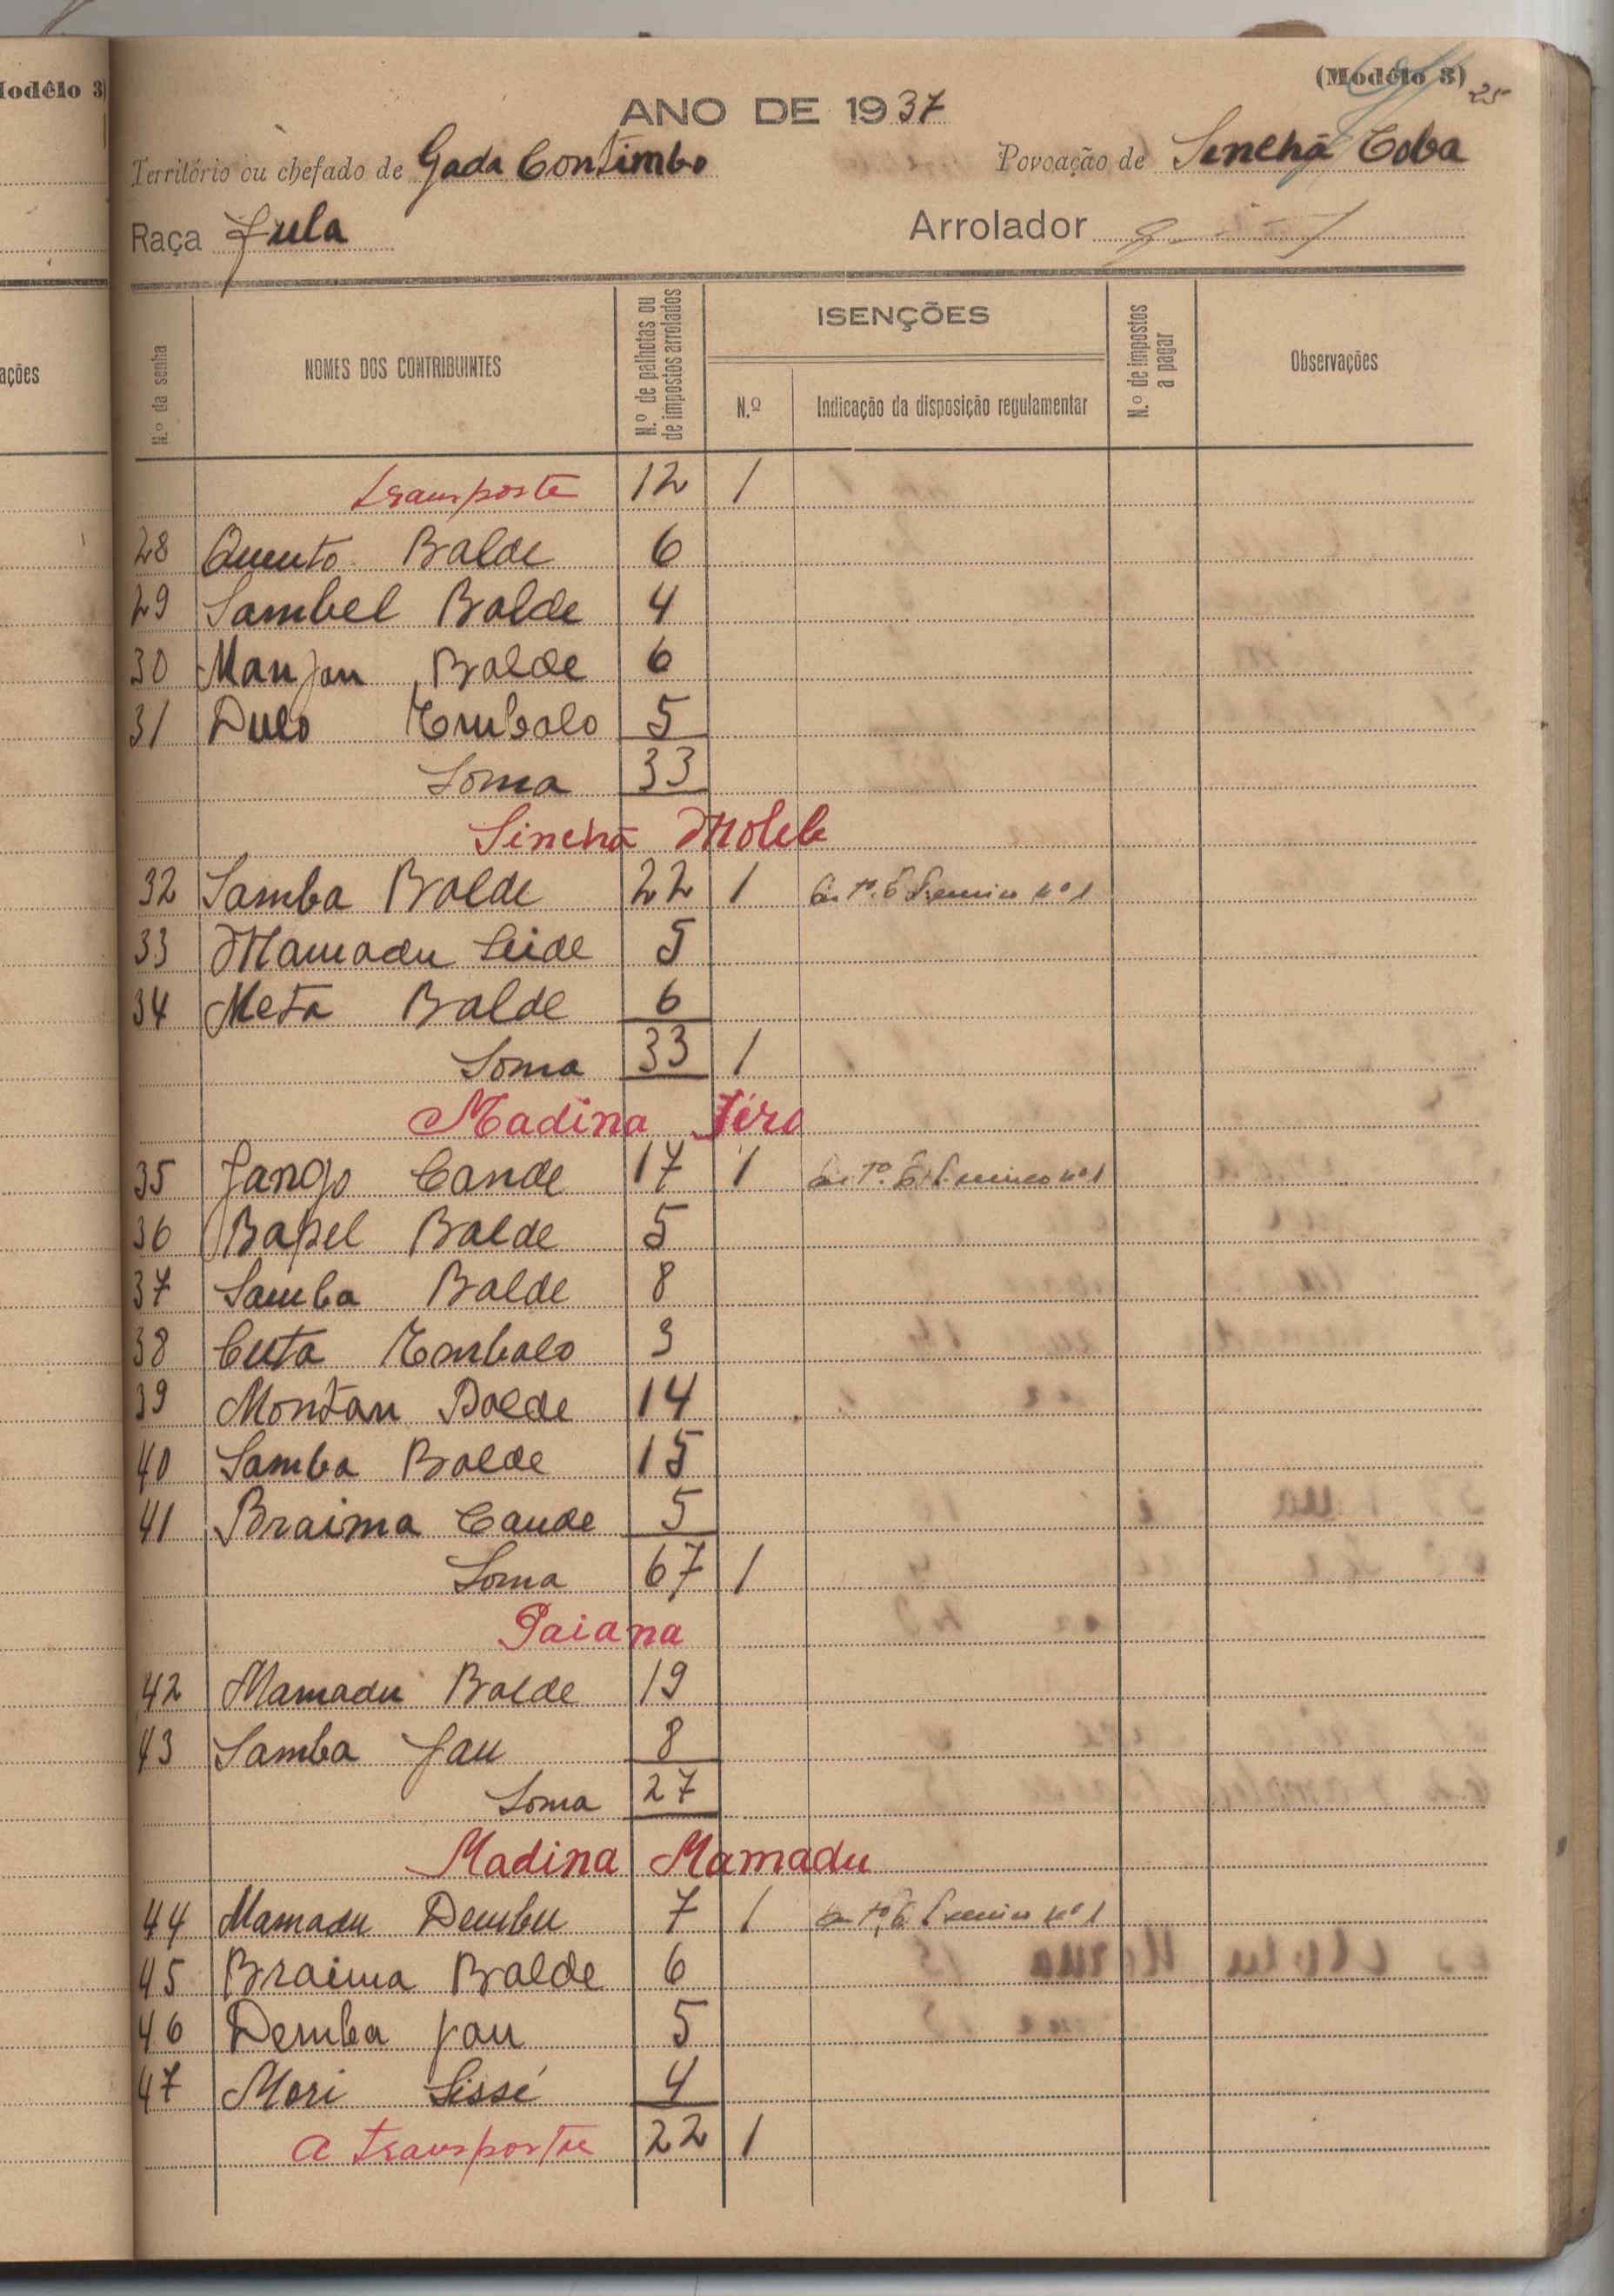 odêlo 3)
ações
(Modêlo 3)
25
ANO DE 1937
Território ou chefado de Gada Contimbo
Povoação de Senchã Coba
Raça Fula
Arrolador
N.º da senha
NOMES DOS CONTRIBUINTES
N.º de palhotas ou de impostos arrolados
ISENÇÕES
N.º
Indicação da disposição regulamentar
N.º de impostos a pagar
Observações
transporte 12 1
28 Quuto Balde 6
29 Sambel Balde 4
30 Manjan Balde 6
31 Dulo Embalo 5
Soma 33
Sinchã Molele
32 Samba Balde 22 1 nº 1
33 Mamadu Seide 5
34 Meta Balde 6
Soma 33 1
Madina Féro
35 Jango Cande 17 1 nº 1
36 Bapel Balde 5
37 Samba Balde 8
38 Cuta Embalo 3
39 Montan Balde 14
40 Samba Balde 15
41 Braima Cande 5
Soma 67 1
Paiana
42 Mamadu Balde 19
43 Samba Jau 8
Soma 27
Madina Mamadu
44 Mamadu Dembu 7 1 nº 1
45 Braima Balde 6
46 Demba Jau 5
47 Mori Sissé 4
a transportar 22 1